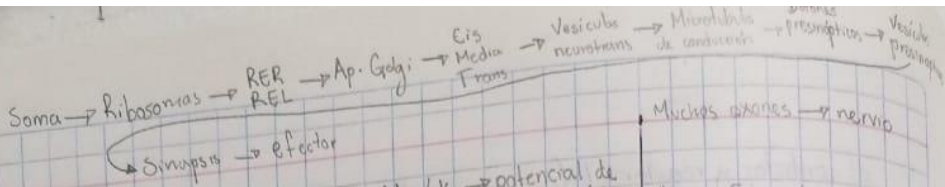 Soma → Ribosomas → RER REL → Ap. Golgi → Cis Media Trans → Vesícula neurotrans → Microtúbulo de conducción → presinápticos → Vesícula
Sinapsis → efector
Muchos axones → nervio
→ potencial de